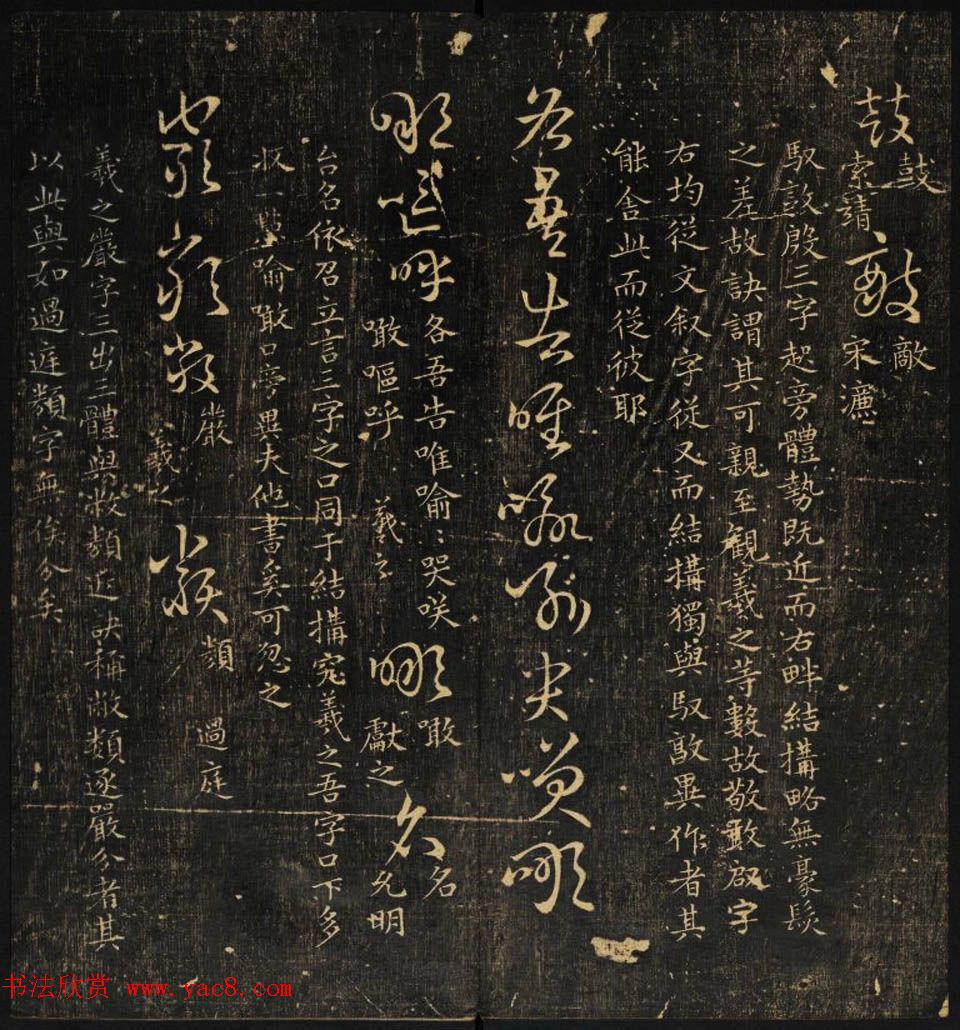 鼓 鼓 索靖 敵 敵 宋濂
馭敦殷三字起旁體勢既近而右畔結搆略無豪髮
之差故訣謂其可親至觀羲之等數故敬敢啟字
右均從文叙字從又而結搆獨與馭敦異作者其
能舍此而從彼耶
各吾告唯喻咏哭笑噉
噉嘔呼 各吾告唯喻:哭咲
噉嘔呼 羲之 噉 噉 獻之 名 名 允明
台名依召立言三字之口同于結搆宛羲之吾字口下多
收一筆喻噉口旁異夫他書奚可忽之
嚴嚴嚴 嚴 羲之 類 類 過庭
羲之嚴字三出三體與敝類近訣稱敝類逐嚴分者其
以此與如過庭類字無俟分矣
书法欣赏 www.yac8.com